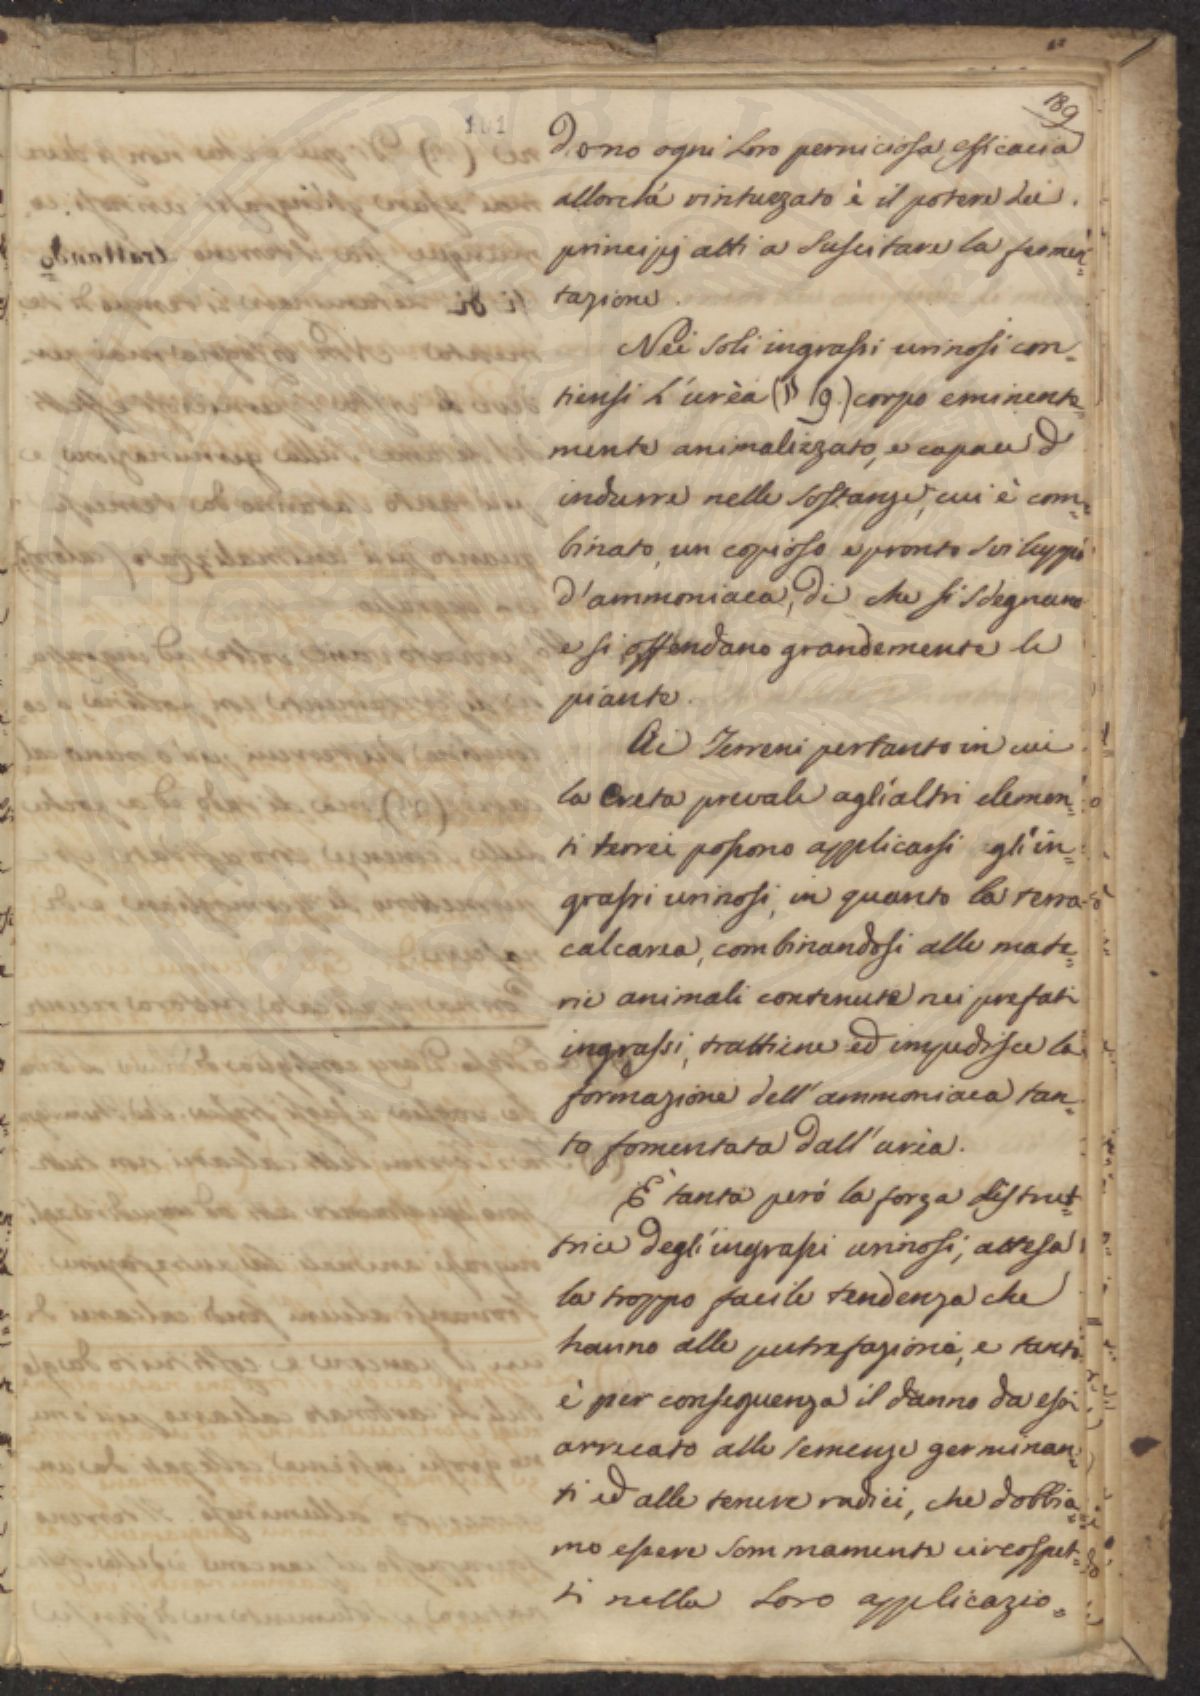 189
dono ogni loro perniciosa efficacia
allorchè rintuzzato è il potere dei
principj atti a suscitare la fermen=
tazione.
Nei soli ingrassi urinosi con=
tiensi l'urèa corpo eminente=
mente animalizzato, e capace d
indurre nelle sostanze, cui è com=
binato, un copioso e pronto sviluppo
d'ammoniaca, di che si sdegnano
e si offendano grandemente le
piante.
Ai Terreni pertanto in cui
la Creta prevale agli altri elemen=
ti terrei possono applicarsi gl'in=
grassi urinosi, in quanto la terra
calcarea, combinandosi alle mate=
rie animali contenute nei prefati
ingrassi, trattiene ed impedisce la
formazione dell'ammoniaca tan=
to fomentata dall'urèa.
È tanta però la forza distrut=
trice degl'ingrassi urinosi, attesa
la troppo facile tendenza che
hanno alle putrefazione, e tanto
è per conseguenza il danno da essi
arrecato alle semenze germinan=
ti ed alle tenere radici, che dobbia=
mo essere sommamente circospet=
ti nella loro applicazio=